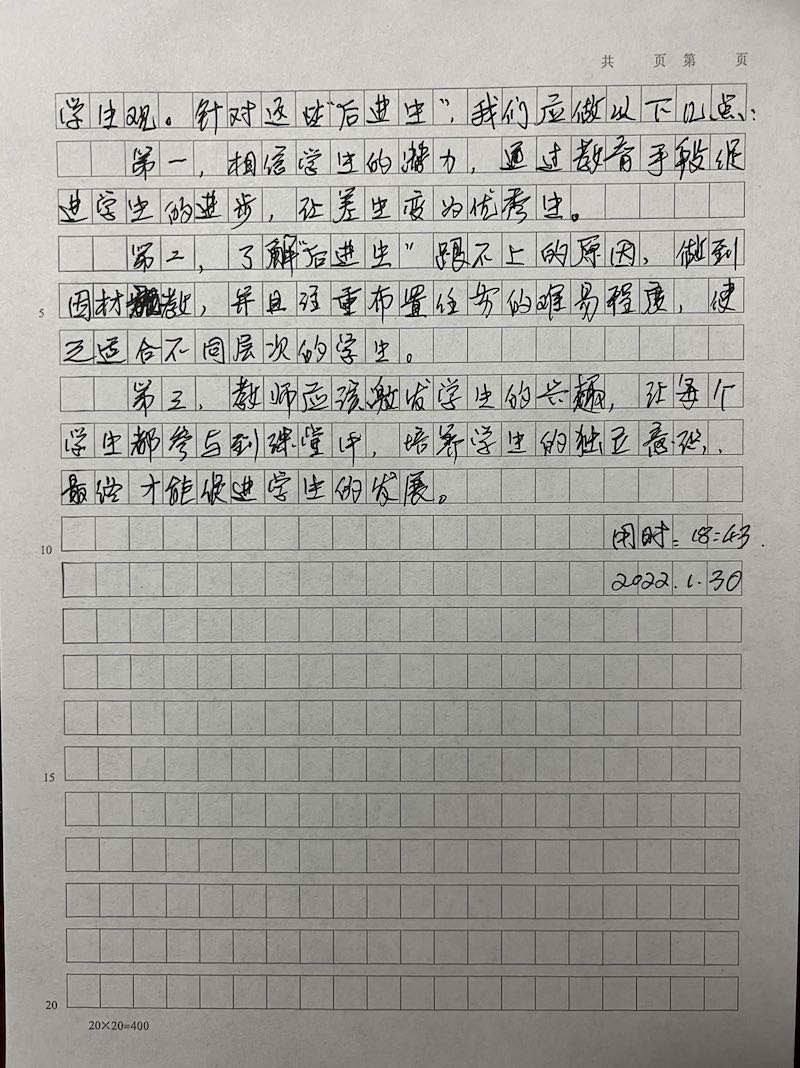 共 页 第 页
学生观。针对这些"后进生",我们应做以下几点:
第一,相信学生的潜力,通过教育手段促
进学生的进步,让差生变为优秀生。
第二,了解"后进生"跟不上的原因,做到
5 因材施教,并且注重布置任务的难易程度,使
之适合不同层次的学生。
第三,教师应该激发学生的兴趣,让每个
学生都参与到课堂中,培养学生的独立意识,
最终才能促进学生的发展。
10 用时:18:43.
2022.1.30
15
20
20×20=400